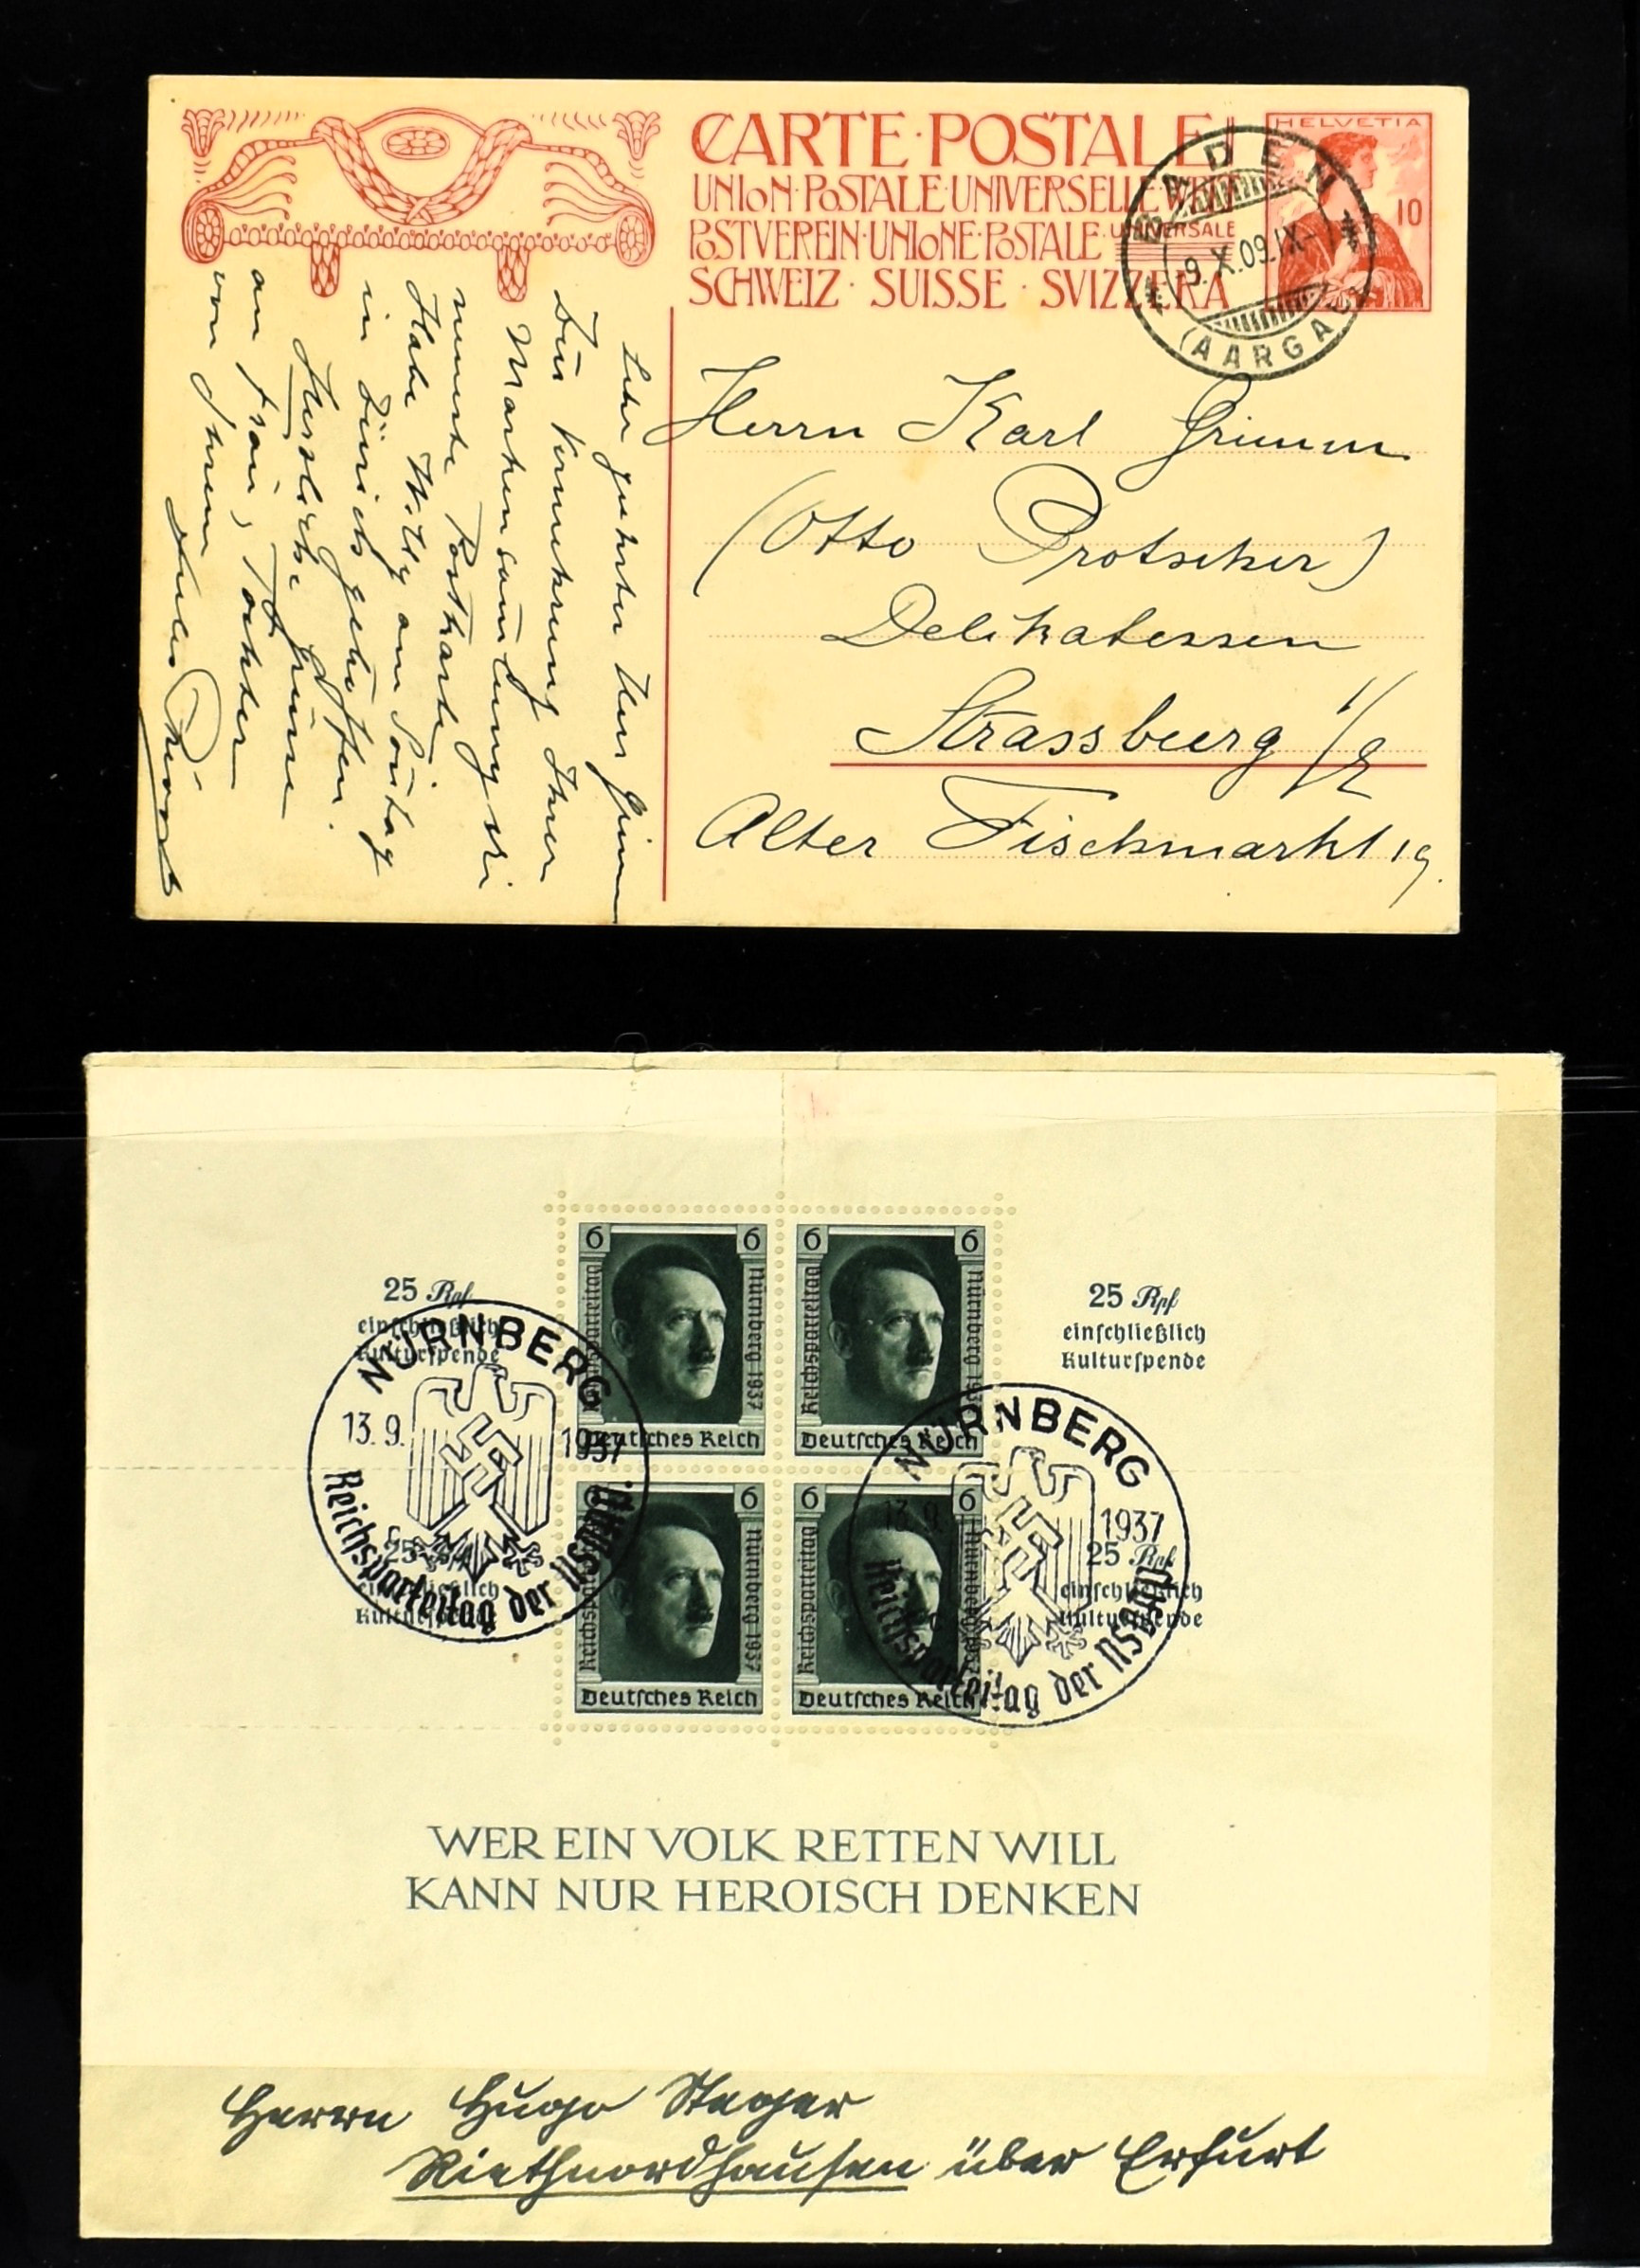 CARTE·POSTALE
UNION·POSTALE·UNIVERSELLE·WELT
POSTVEREIN·UNIONE·POSTALE·UNIVERSALE
SCHWEIZ · SUISSE · SVIZZERA
HELVETIA
10
BADEN
9.X.09.IX-
(AARGAU)
Herrn Karl Grimm
(Otto Protscher)
Delikatessen
Strassburg i/E
Alter Fischmarkt 19.
Zur Vermehrung Ihrer
Markensammlung
Postkarte
Habe Willy am Sontag
in Zürich getroffen.
Herzliche Grüsse
an Frau, Tochter
von Ihrem
6 6
Reichsparteitag Nürnberg 1937
Deutsches Reich
6 6
Reichsparteitag Nürnberg 1937
Deutsches Reich
6
Reichsparteitag Nürnberg 1937
Deutsches Reich
6 6
Reichsparteitag Nürnberg 1937
Deutsches Reich
25 Rpf
einschließlich
Kulturspende
25 Rpf
einschließlich
Kulturspende
25 Rpf
einschließlich
Kulturspende
25 Rpf
einschließlich
Kulturspende
NÜRNBERG
13.9. 1937
Reichsparteitag der NSDAP.
NÜRNBERG
13.9. 1937
Reichsparteitag der NSDAP.
WER EIN VOLK RETTEN WILL
KANN NUR HEROISCH DENKEN
Herrn Hugo Steger
Riethnordhausen über Erfurt